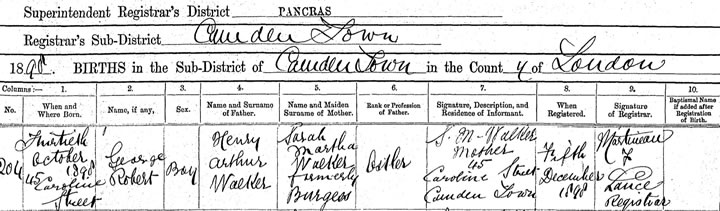 Superintendent Registrar's District PANCRAS
Registrar's Sub-District Camden Town
1898. BIRTHS in the Sub-District of Camden Town in the County of London
Columns:— 1. 2. 3. 4. 5. 6. 7. 8. 9. 10.
No. When and Where Born. Name, if any, Sex. Name and Surname of Father. Name and Maiden Surname of Mother. Rank or Profession of Father. Signature, Description, and Residence of Informant. When Registered. Signature of Registrar. Baptismal Name if added after Registration of Birth.
204
Thirtieth
October
1898
45
Caroline
Street
George
Robert
Boy
Henry
Arthur
Walker
Sarah
Martha
Walker
formerly
Burgess
Ostler
S. M. Walker
Mother
45
Caroline Street
Camden Town
Fifth
December
1898
Lance
Registrar